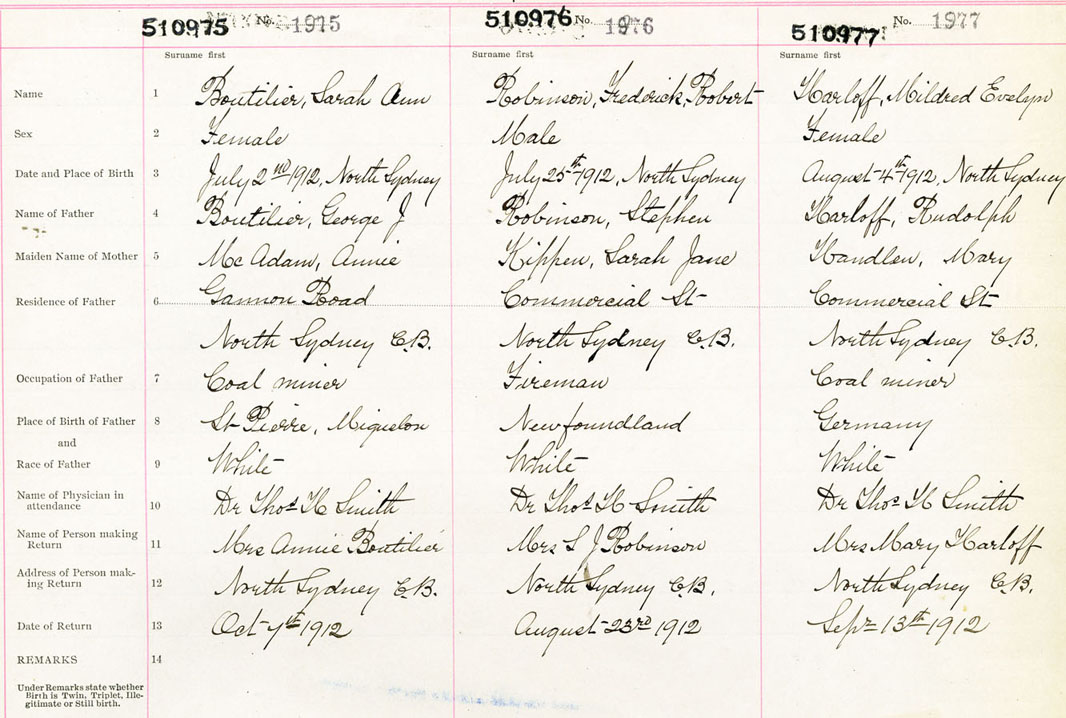 510975 No. 1975 510976 No. 1976 510977 No. 1977
Surname first Surname first Surname first
Name 1 Boutilier, Sarah Ann Robinson, Frederick Robert Harloff, Mildred Evelyn
Sex 2 Female Male Female
Date and Place of Birth 3 July 2nd 1912, North Sydney July 25th 1912, North Sydney August 4th 1912, North Sydney
Name of Father 4 Boutilier, George J Robinson, Stephen Harloff, Rudolph
Maiden Name of Mother 5 Mc Adam, Annie Kippen, Sarah Jane Handlen, Mary
Residence of Father 6 Gannon Road Commercial St Commercial St
North Sydney C.B. North Sydney C.B. North Sydney C.B.
Occupation of Father 7 Coal miner Fireman Coal miner
Place of Birth of Father 8 St Pierre, Miquelon Newfoundland Germany
and
Race of Father 9 White White White
Name of Physician in
attendance 10 Dr Thos H Smith Dr Thos H Smith Dr Thos H Smith
Name of Person making
Return 11 Mrs Annie Boutilier Mrs S J Robinson Mrs Mary Harloff
Address of Person mak-
ing Return 12 North Sydney C.B. North Sydney C.B. North Sydney C.B.
Date of Return 13 Oct 7th 1912 August 23rd 1912 Sepr 13th 1912
REMARKS 14
Under Remarks state whether
Birth is Twin, Triplet, Ille-
gitimate or Still birth.